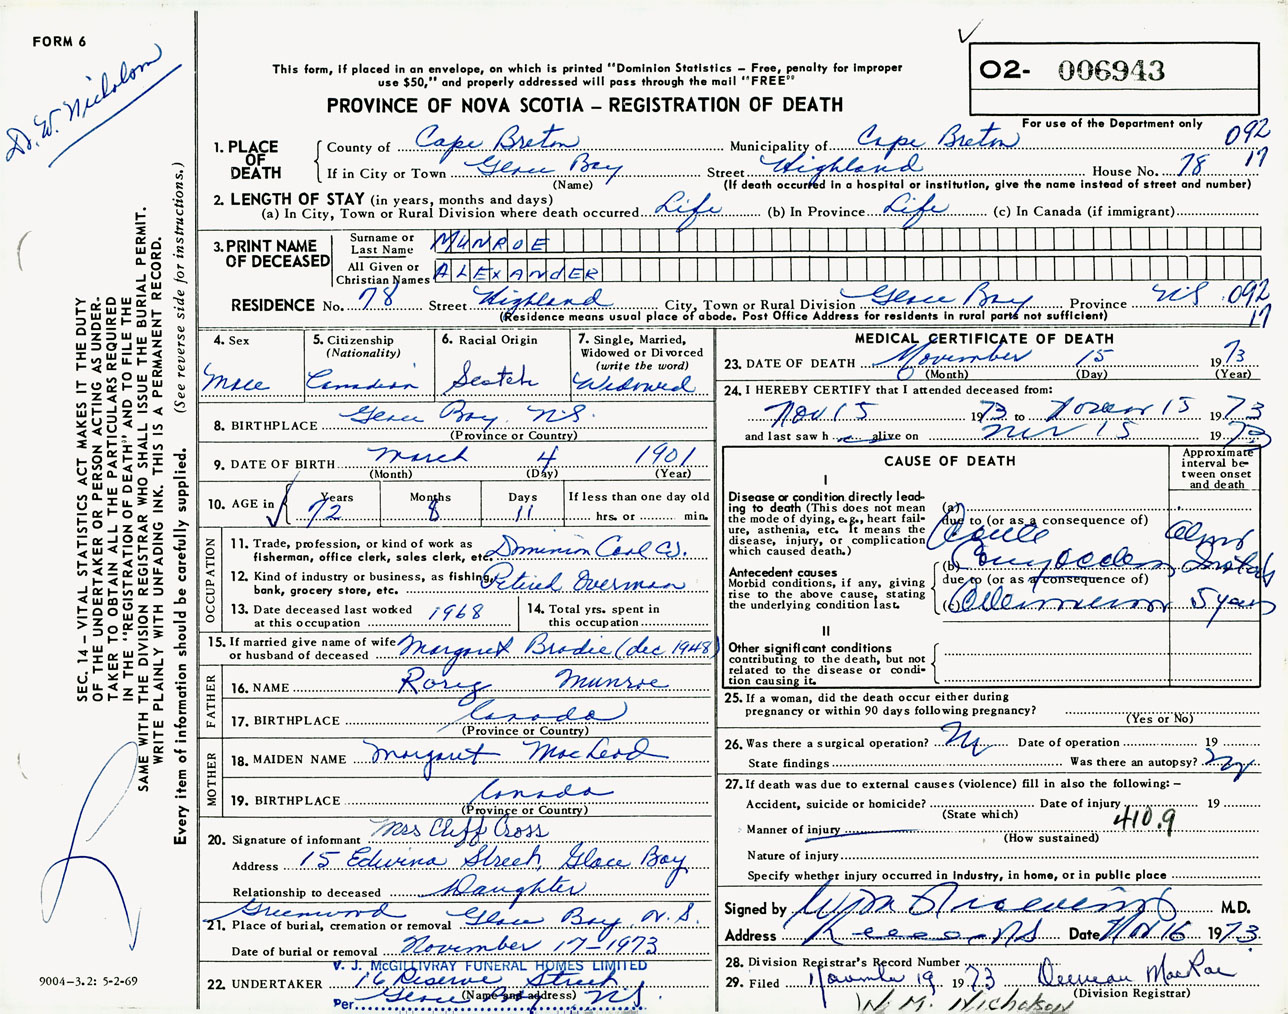 FORM 6
Dr. W. Nicholson
This form, if placed in an envelope, on which is printed "Dominion Statistics – Free, penalty for improper
use $50," and properly addressed will pass through the mail "FREE"
PROVINCE OF NOVA SCOTIA – REGISTRATION OF DEATH
02- 006943
For use of the Department only
092
17
1. PLACE OF DEATH
County of Cape Breton Municipality of Cape Breton
If in City or Town Glace Bay Street Highland House No. 78
(Name) (If death occurred in a hospital or institution, give the name instead of street and number)
2. LENGTH OF STAY (in years, months and days)
(a) In City, Town or Rural Division where death occurred Life (b) In Province Life (c) In Canada (if immigrant)
3. PRINT NAME OF DECEASED
Surname or Last Name MUNROE
All Given or Christian Names ALEXANDER
RESIDENCE No. 78 Street Highland City, Town or Rural Division Glace Bay Province NS 092
(Residence means usual place of abode. Post Office Address for residents in rural parts not sufficient) 17
4. Sex Male
5. Citizenship (Nationality) Canadian
6. Racial Origin Scotch
7. Single, Married, Widowed or Divorced (write the word) Widowed
8. BIRTHPLACE Glace Bay NS.
(Province or Country)
9. DATE OF BIRTH March 4 1901
(Month) (Day) (Year)
10. AGE in Years 72 Months 8 Days 11 If less than one day old
hrs. or min.
OCCUPATION
11. Trade, profession, or kind of work as
fisherman, office clerk, sales clerk, etc. Dominion Coal Co.
12. Kind of industry or business, as fishing,
bank, grocery store, etc. Retired Overman
13. Date deceased last worked
at this occupation 1968
14. Total yrs. spent in
this occupation
15. If married give name of wife
or husband of deceased Margaret Brodie (dec 1948)
FATHER
16. NAME Rory Munroe
17. BIRTHPLACE Canada
(Province or Country)
MOTHER
18. MAIDEN NAME Margaret MacLeod
19. BIRTHPLACE Canada
(Province or Country)
20. Signature of informant Mrs Cliff Cross
Address 15 Edwina Street, Glace Bay
Relationship to deceased Daughter
21. Place of burial, cremation or removal Greenwood Glace Bay, N.S.
Date of burial or removal November 17–1973
V. J. McGILLIVRAY FUNERAL HOMES LIMITED
22. UNDERTAKER 16 Reserve Street
(Name and address)
Per Glace Bay NS.
MEDICAL CERTIFICATE OF DEATH
23. DATE OF DEATH November 15 1973
(Month) (Day) (Year)
24. I HEREBY CERTIFY that I attended deceased from:
Nov 15 1973 to 15 1973
and last saw h alive on Nov 15 1973
CAUSE OF DEATH
Approximate interval between onset and death
I
Disease or condition directly lead-
ing to death (This does not mean
the mode of dying, e.g., heart fail-
ure, asthenia, etc. It means the
disease, injury, or complication
which caused death.)
(a)
due to (or as a consequence of)
Acute
Antecedent causes
Morbid conditions, if any, giving
rise to the above cause, stating
the underlying condition last.
(b)
due to (or as a consequence of)
(c) 5 years
II
Other significant conditions
contributing to the death, but not
related to the disease or condi-
tion causing it.
25. If a woman, did the death occur either during
pregnancy or within 90 days following pregnancy?
(Yes or No)
26. Was there a surgical operation? No Date of operation 19
State findings Was there an autopsy? No
27. If death was due to external causes (violence) fill in also the following: –
Accident, suicide or homicide? Date of injury 19
(State which) 410.9
Manner of injury
(How sustained)
Nature of injury
Specify whether injury occurred in industry, in home, or in public place
Signed by M.D.
Address NS Date Nov 16 1973
28. Division Registrar's Record Number
29. Filed November 19 1973 MacRae
(Division Registrar)
W. M. Nicholson
SEC. 14 – VITAL STATISTICS ACT MAKES IT THE DUTY
OF THE UNDERTAKER OR PERSON ACTING AS UNDER-
TAKER TO OBTAIN ALL THE PARTICULARS REQUIRED
IN THE "REGISTRATION OF DEATH" AND TO FILE THE
SAME WITH THE DIVISION REGISTRAR WHO SHALL ISSUE THE BURIAL PERMIT.
WRITE PLAINLY WITH UNFADING INK. THIS IS A PERMANENT RECORD.
Every item of information should be carefully supplied. (See reverse side for instructions.)
9004–3.2: 5-2-69